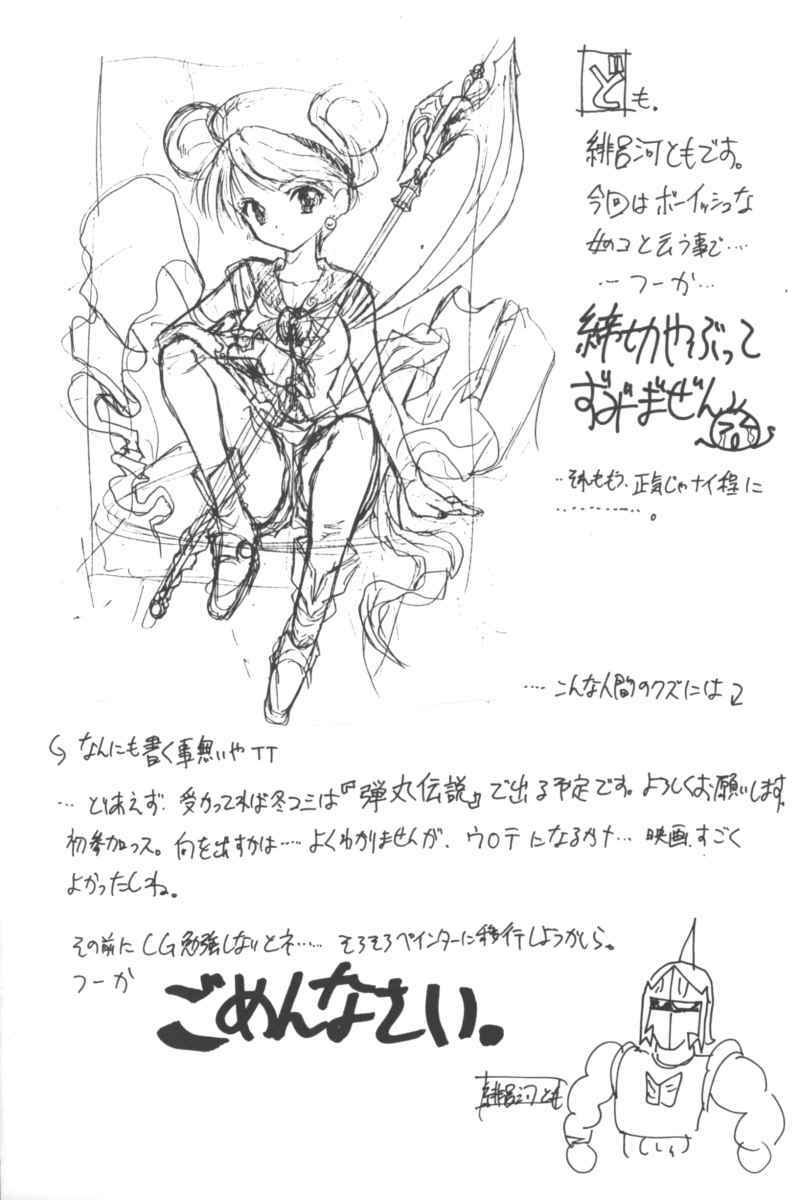 ども。
緋呂河ともです。
今回はボーイッシュな
女のコと云う事で‥‥
‥つーか‥
締切やぶって
ずみまぜん
‥それももう、正気じゃナイ程に
‥‥‥‥‥。
‥‥こんな人間のクズには
なんにも書く事無いやTT
‥とりあえず、受かってれば冬コミは『弾丸伝説』で出る予定です。よろしくお願いします
初参加っス。何を出すかは‥‥よくわかりませんが、ウロテになるかナ‥映画、すごく
よかったしね。
その前にCG勉強しないとネ‥‥そろそろペインターに移行しようかしら。
つーか
ごめんなさい。
緋呂河とも